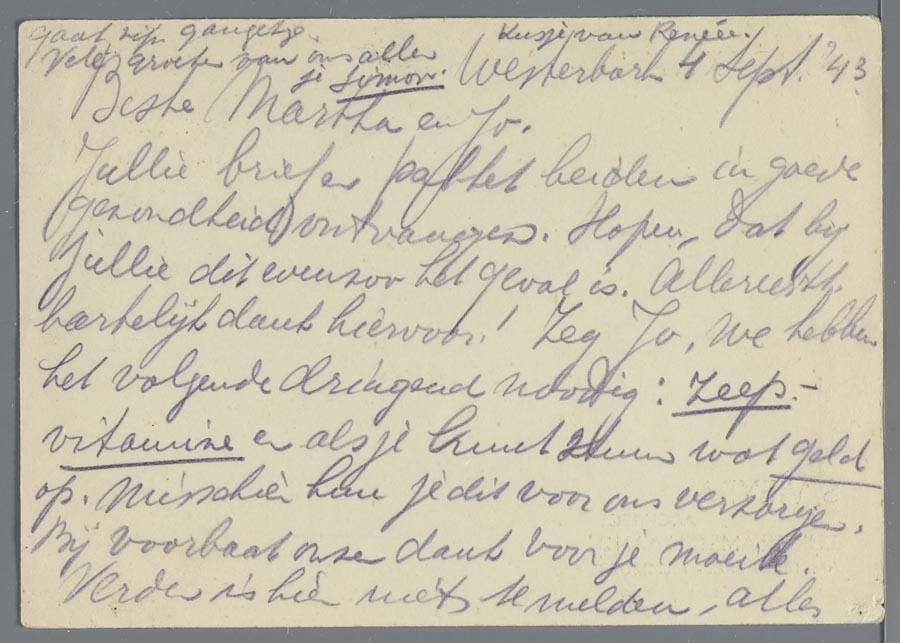 gaat zijn gangetje.
Vele groeten van ons allen
je Simon.
Kusje van Renée.
Westerbork 4 Sept. '43
Beste Martha en Jo.
Jullie brief en pakket beiden in goede
gezondheid ontvangen. Hopen, dat bij
jullie dit evenzoo het geval is. Allereerst
hartelijk dank hiervoor! Zeg Jo, we hebben
het volgende dringend noodig: zeep-
vitamine en als je kunt stuur wat geld
op. Misschien kun je dit voor ons verzorgen.
Bij voorbaat onze dank voor je moeite.
Verder is hier niets te melden, alles